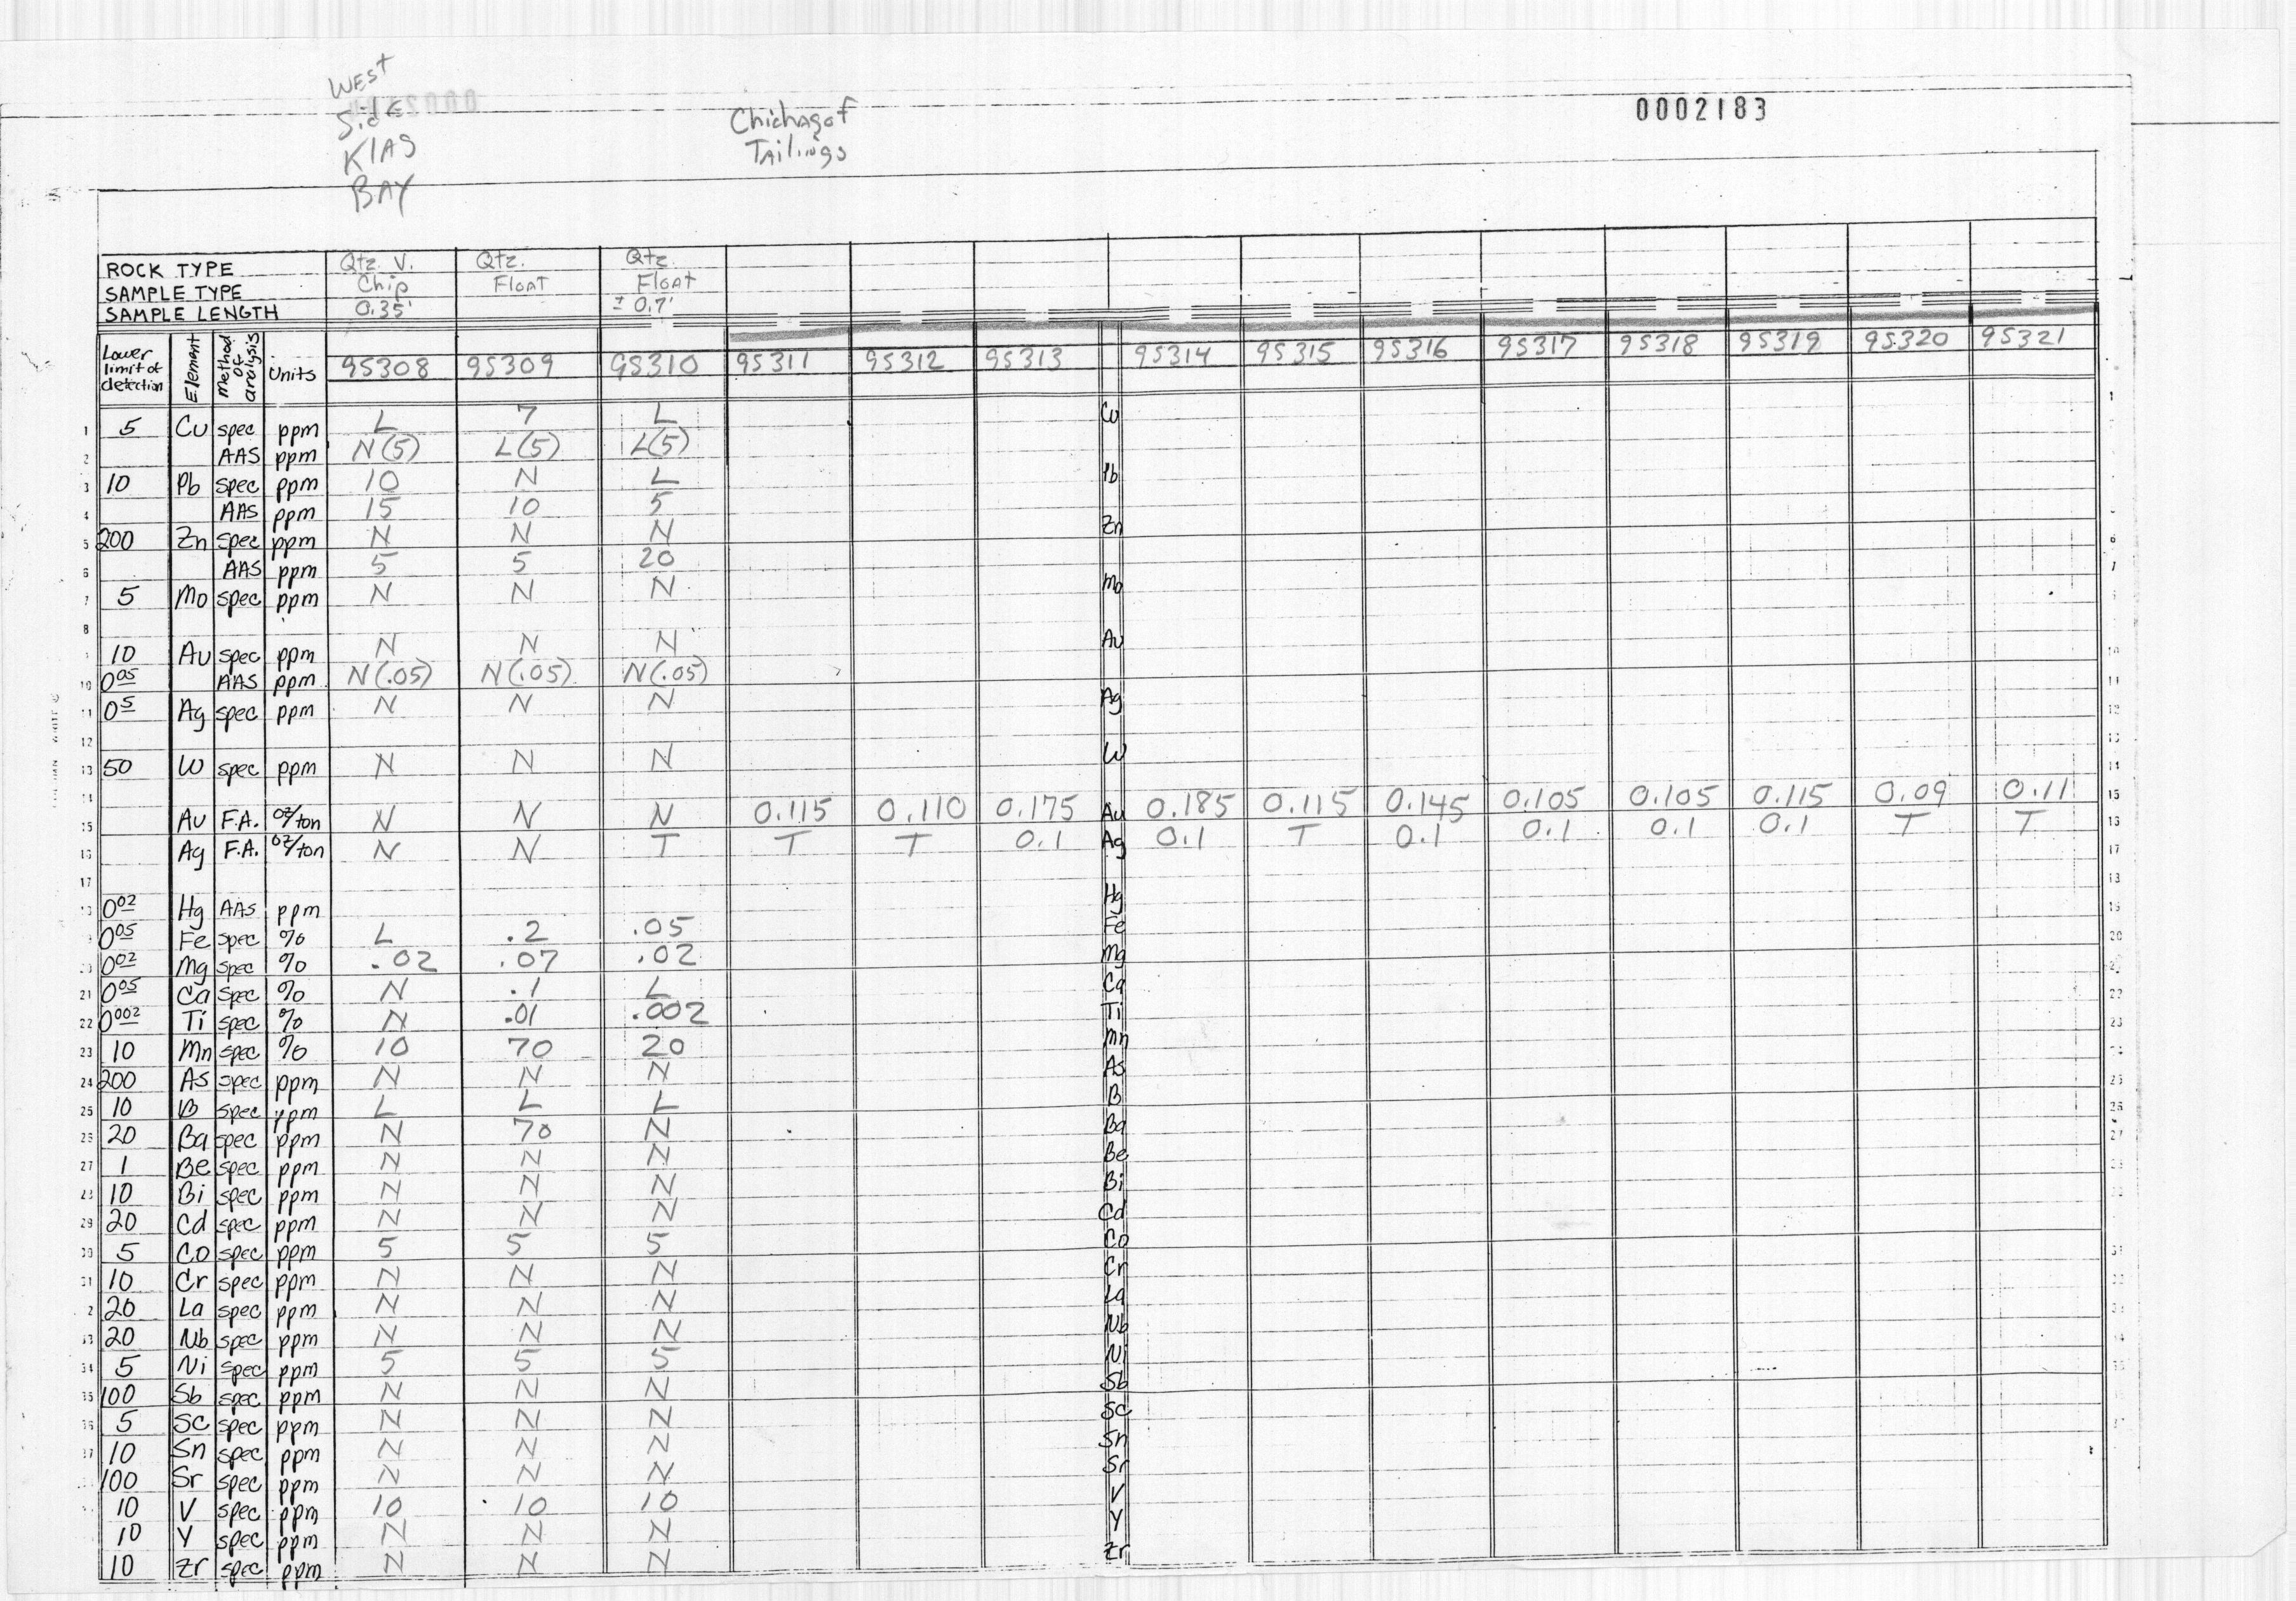 WEst
Side
KlAS
BAY
Chichagof
TAilings
0002183
ROCK TYPE Qtz. V. Qtz. Qtz
SAMPLE TYPE Chip FloAT FloAT
SAMPLE LENGTH 0.35' ± 0.7'
Lower limit of detection Element Method of analysis Units 9S308 9S309 9S310 9S311 9S312 9S313 9S314 9S315 9S316 9S317 9S318 9S319 9S320 9S321
1 5 Cu spec ppm L 7 L Cu
2 AAS ppm N(5) L(5) L(5)
3 10 Pb spec ppm 10 N L Pb
4 AAS ppm 15 10 5
5 200 Zn spec ppm N N N Zn
6 AAS ppm 5 5 20
7 5 Mo spec ppm N N N Mo
8
10 Au spec ppm N N N Au
10 0.05 AAS ppm N(.05) N(.05) N(.05)
11 0.5 Ag spec ppm N N N Ag
12
13 50 W spec ppm N N N W
14
15 Au F.A. oz/ton N N N 0.115 0.110 0.175 Au 0.185 0.115 0.145 0.105 0.105 0.115 0.09 0.11
16 Ag F.A. oz/ton N N T T T 0.1 Ag 0.1 T 0.1 0.1 0.1 0.1 T T
17
0.02 Hg AAS ppm Hg
0.05 Fe spec % L .2 .05 Fe
0.02 Mg spec % .02 .07 .02 Mg
21 0.05 Ca spec % N .1 L Ca
22 0.002 Ti spec % N .01 .002 Ti
23 10 Mn spec % 10 70 20 Mn
24 200 As spec ppm N N N As
25 10 B spec ppm L L L B
26 20 Ba spec ppm N 70 N Ba
27 1 Be spec ppm N N N Be
28 10 Bi spec ppm N N N Bi
29 20 Cd spec ppm N N N Cd
30 5 Co spec ppm 5 5 5 Co
31 10 Cr spec ppm N N N Cr
20 La spec ppm N N N La
33 20 Nb spec ppm N N N Nb
34 5 Ni spec ppm 5 5 5 Ni
35 100 Sb spec ppm N N N Sb
36 5 Sc spec ppm N N N Sc
37 10 Sn spec ppm N N N Sn
100 Sr spec ppm N N N Sr
10 V spec ppm 10 10 10 V
10 Y spec ppm N N N Y
10 Zr spec ppm N N N Zr